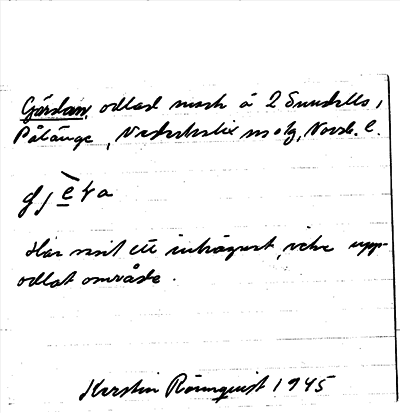 Gärdan, odlad mark å 2 Sundells,
Pålänge, Nederkalix sn o tg, Norrb. l.
Har varit ett inhägnat, icke upp-
odlat område.
Kerstin Rönnquist 1945